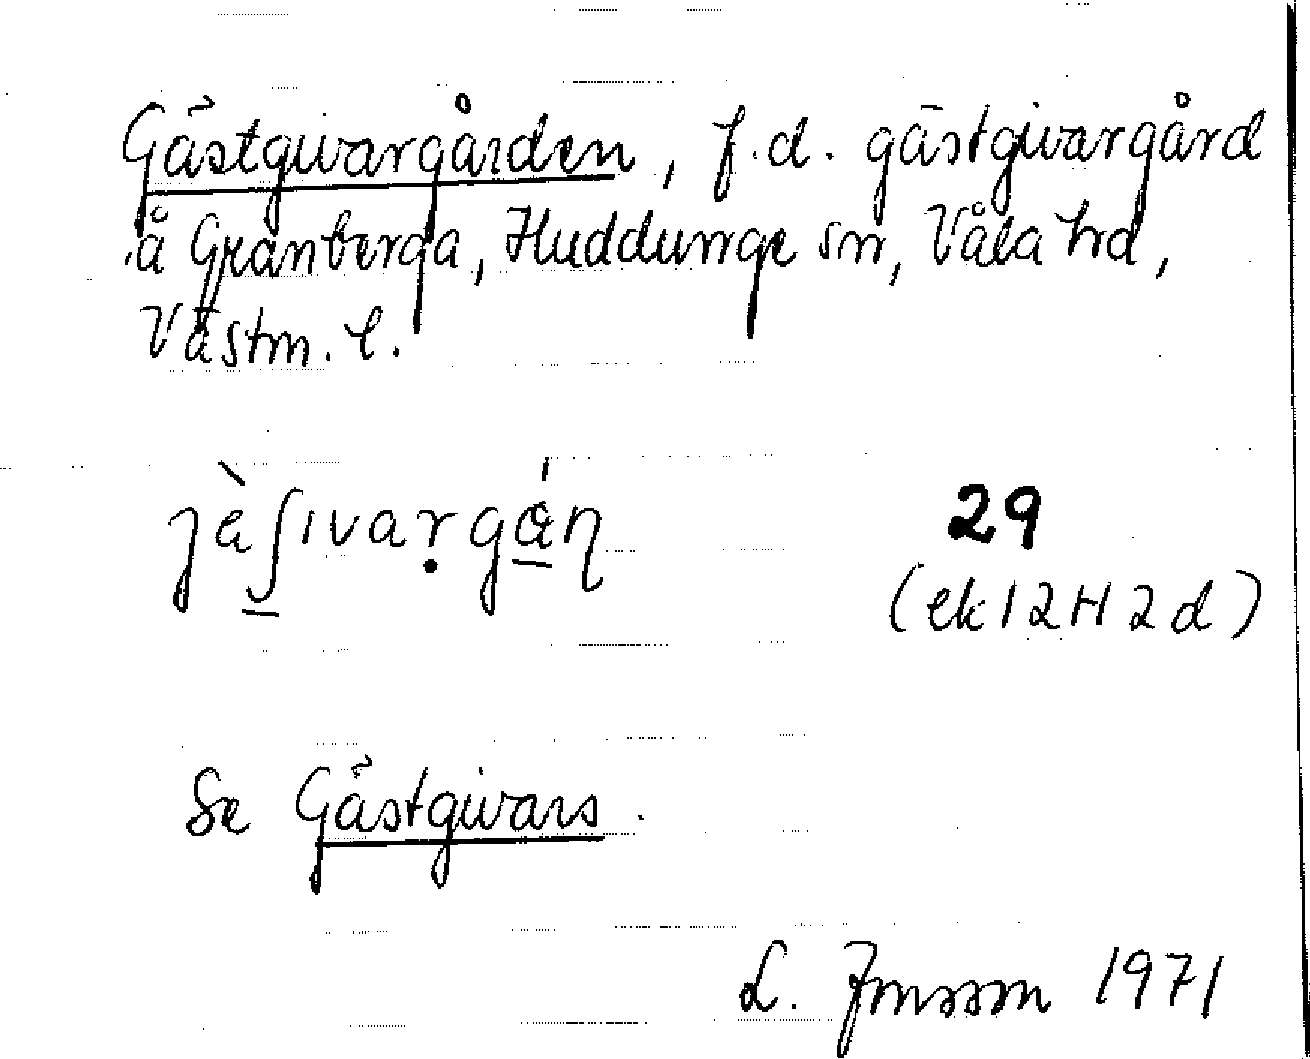 Gästgivargården, f.d. gästgivargård
å Granberga, Huddunge sn, Våla hd,
Västm. l.
29
(ek 12H2d)
Se Gästgivars.
L. Jonsson 1971